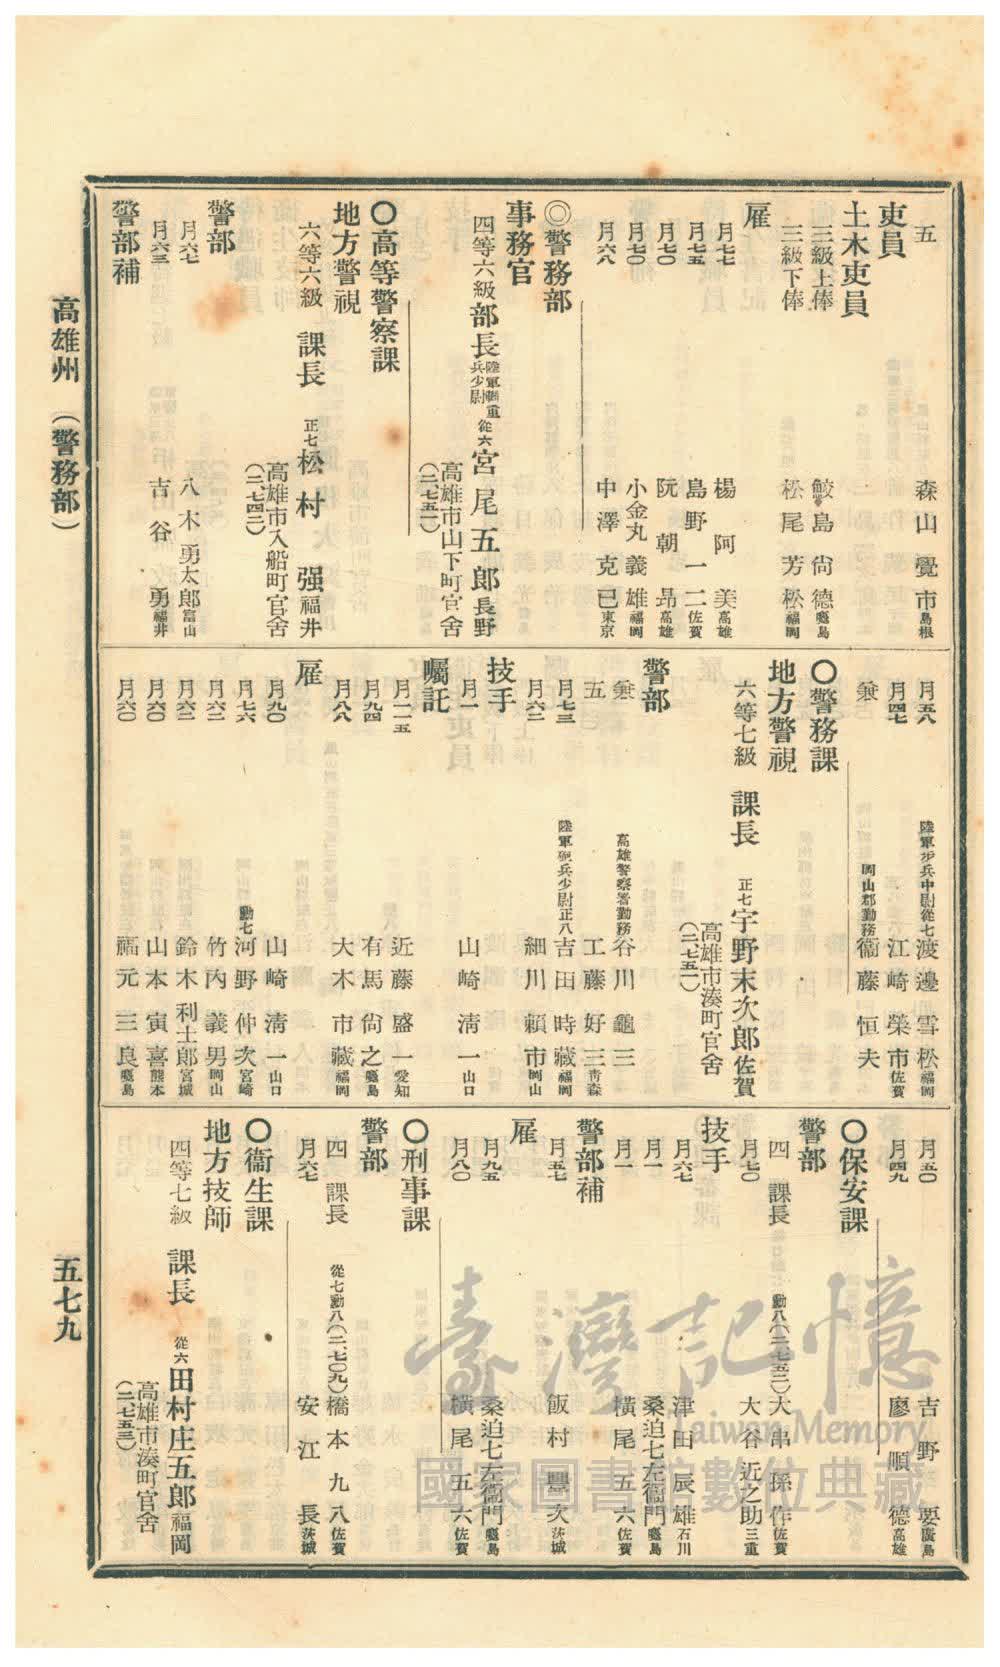 吏員
五　森山覺市島根
土木吏員
三級上俸　鮫島尙德鹿島
三級下俸　松尾芳松福岡
雇
月七七　楊阿美高雄
月七五　島野一二佐賀
月七〇　阮朝昻高雄
月七〇　小金丸義雄福岡
月六八　中澤克巳東京
◎警務部
事務官
四等六級　部長　陸軍輜重兵少尉　從六　宮尾五郎長野
高雄市山下町官舍
(二、七五一)
〇高等警察課
地方警視
六等六級　課長　正七　松村强福井
高雄市入船町官舍
(二、七四二)
警部
月六七　八木勇太郎富山
月六三　吉谷勇福井
警部補
月五八　陸軍步兵中尉從七　渡邊雪松福岡
月四七　江崎榮市佐賀
兼　岡山郡勤務　衞藤恒夫
〇警務課
地方警視
六等七級　課長　正七　宇野末次郎佐賀
高雄市湊町官舍
(二、七五一)
警部
兼　高雄警察署勤務　谷川龜三
五　工藤好三靑森
月七三　陸軍砲兵少尉正八　吉田時藏福岡
月六二　細川賴市岡山
技手
月一　山崎淸一山口
囑託
月一一五　近藤盛一愛知
月九四　有馬尙之鹿島
月八八　大木市藏福岡
雇
月九〇　山崎淸一山口
月七六　勳七　河野仲次宮崎
月六二　竹內義男岡山
月六二　鈴木利土郎宮城
月六〇　山本寅喜熊本
月六〇　福元三良鹿島
月五〇　吉野要廣島
月四九　廖順德高雄
〇保安課
警部
四　課長　勳八(二、七五二)　大串孫作佐賀
月七〇　大谷近之助三重
技手
月六七　津田辰雄石川
月一　桑迫七左衞門鹿島
月一　橫尾五六佐賀
警部補
月五七　飯村豐次茨城
雇
月九五　桑迫七左衞門鹿島
月八〇　橫尾五六佐賀
〇刑事課
警部
四　課長　從七勳八(二、七〇九)　橋本九八佐賀
月六七　安江長茨城
〇衞生課
地方技師
四等七級　課長　從六　田村庄五郎福岡
高雄市湊町官舍
(二、七五三)
高雄州　(警務部)
五七九
臺灣記憶
Taiwan Memory
國家圖書館數位典藏